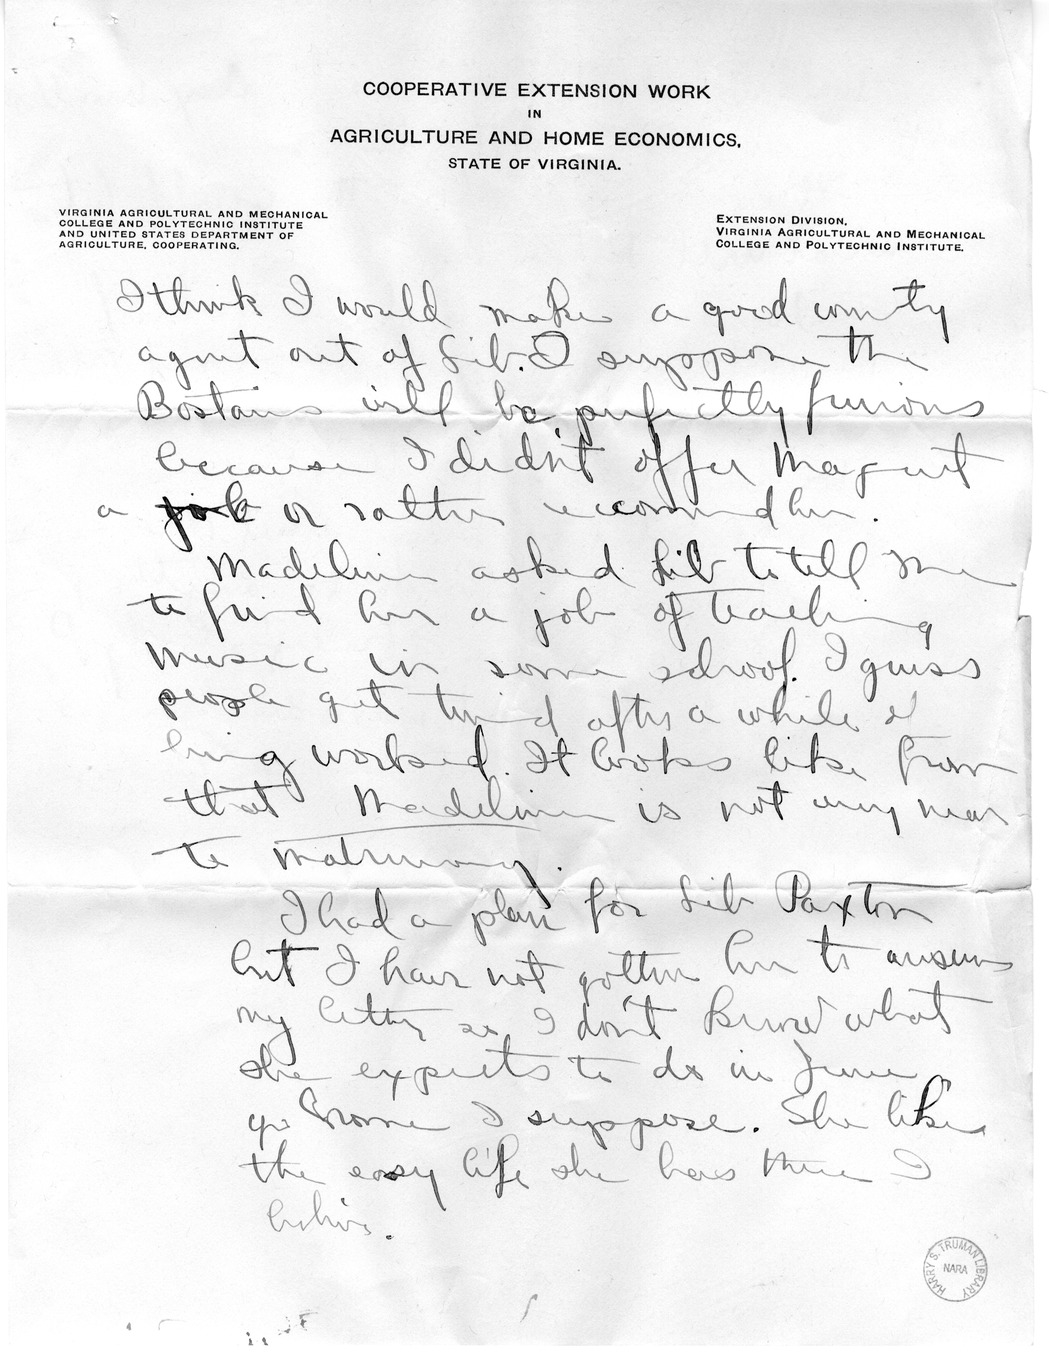 COOPERATIVE EXTENSION WORK
IN
AGRICULTURE AND HOME ECONOMICS,
STATE OF VIRGINIA.
VIRGINIA AGRICULTURAL AND MECHANICAL
COLLEGE AND POLYTECHNIC INSTITUTE
AND UNITED STATES DEPARTMENT OF
AGRICULTURE, COOPERATING.
EXTENSION DIVISION,
VIRGINIA AGRICULTURAL AND MECHANICAL
COLLEGE AND POLYTECHNIC INSTITUTE.
I think I would make a good county
agent out of Lib. I suppose the
Bostains will be perfectly furious
because I didn't offer Margaret
a job or rather recommend her.
Madeline asked Lib to tell me
to find her a job of teaching
music in some school. I guess
people get tired after a while of
being worked. It looks like from
that Madeline is not very near
to matrimony.
I had a plan for Lib Paxton
but I have not gotten her to answer
my letter so I don't know what
she expects to do in June,
go home I suppose. She likes
the easy life she has there I
believe.
HARRY S. TRUMAN LIBRARY
NARA